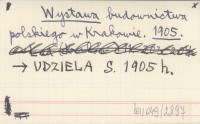 Wystawa budownictwa
polskiego w Krakowie. 1905.
→ UDZIELA S. 1905 h.